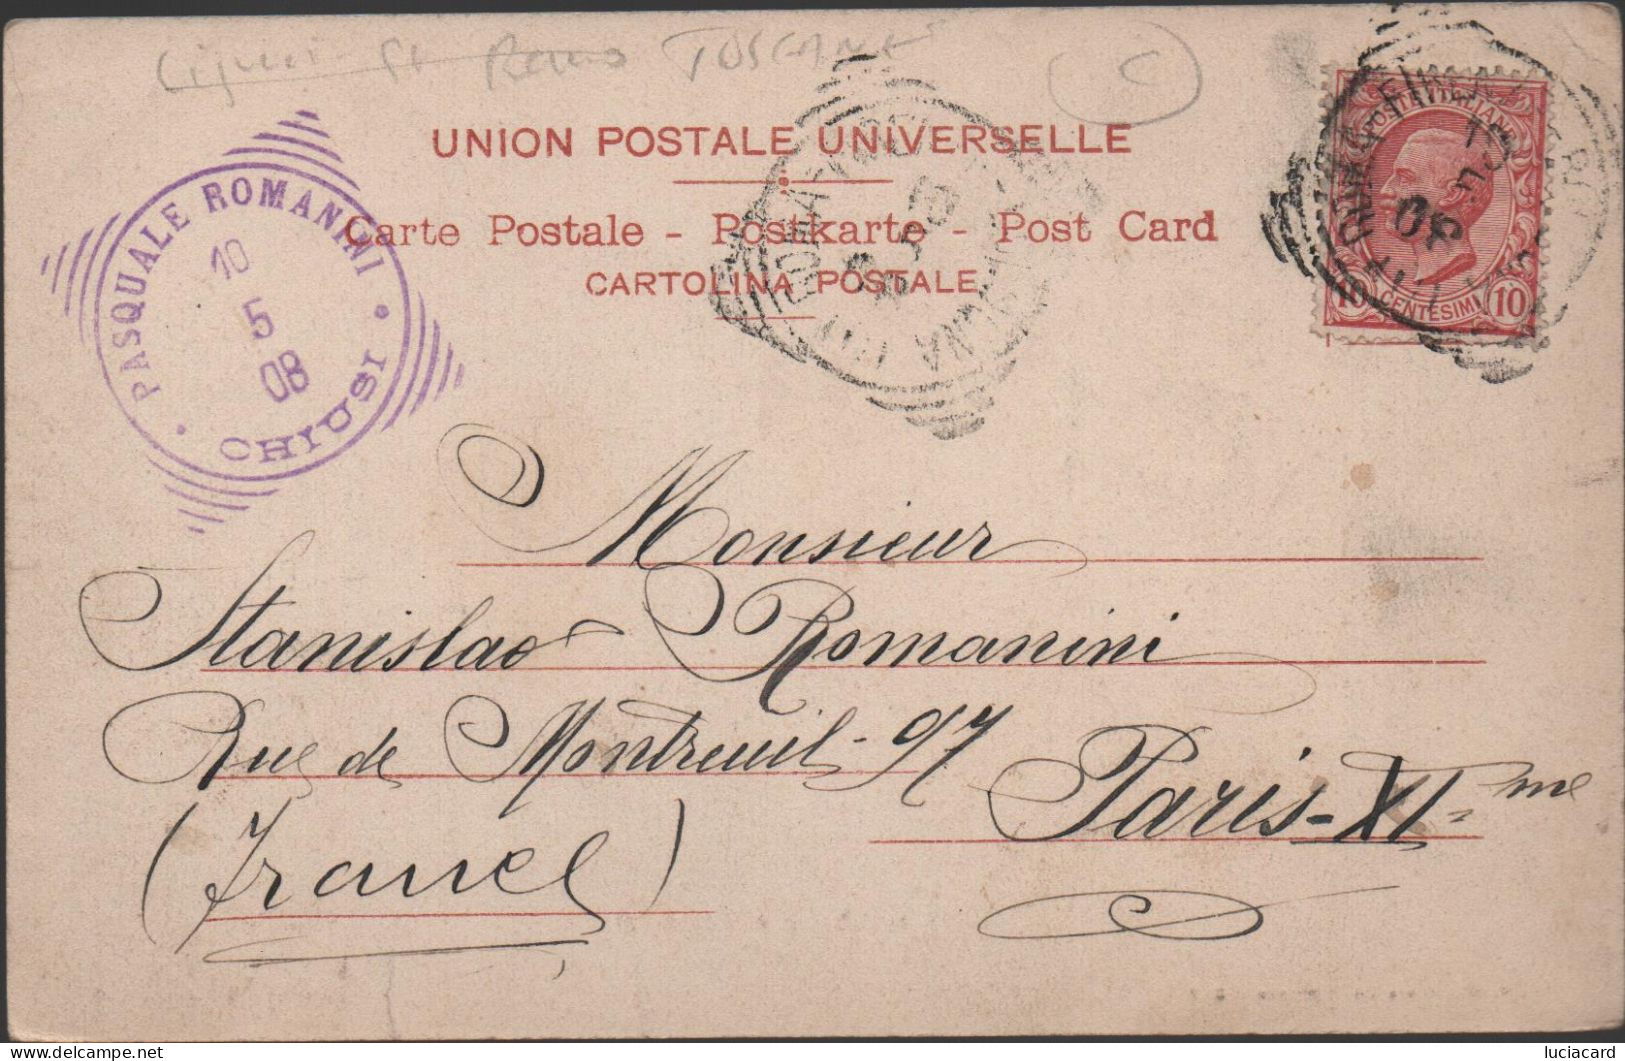 TOSCANE
C
UNION POSTALE UNIVERSELLE
Carte Postale - Postkarte - Post Card
CARTOLINA POSTALE
PASQUALE ROMANINI
10
5
08
CHIUSI
POSTE ITALIANE
10 CENTESIMI 10
Monsieur
Stanislao Romanini
Rue de Montreuil - 97
Paris - XI me
(France)
luciacard